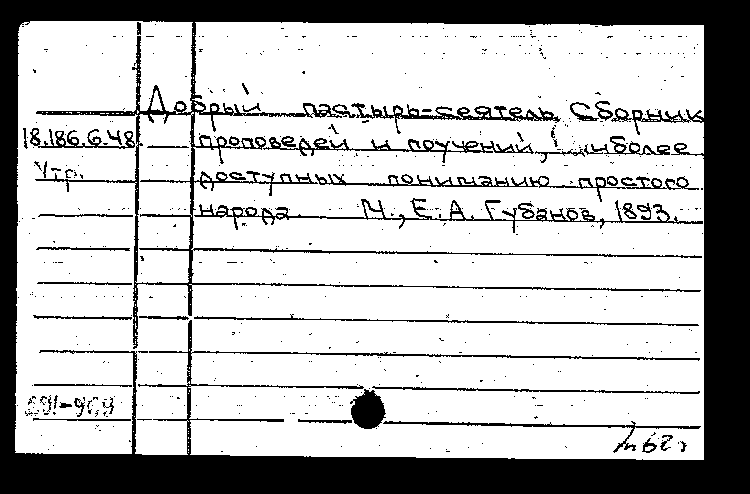 Добрый пастырь-сеятель Сборник
18.186.6.48 проповедей и поучений,
Утр. доступных пониманию простого
народа М., Е.А. Губанов, 1893.